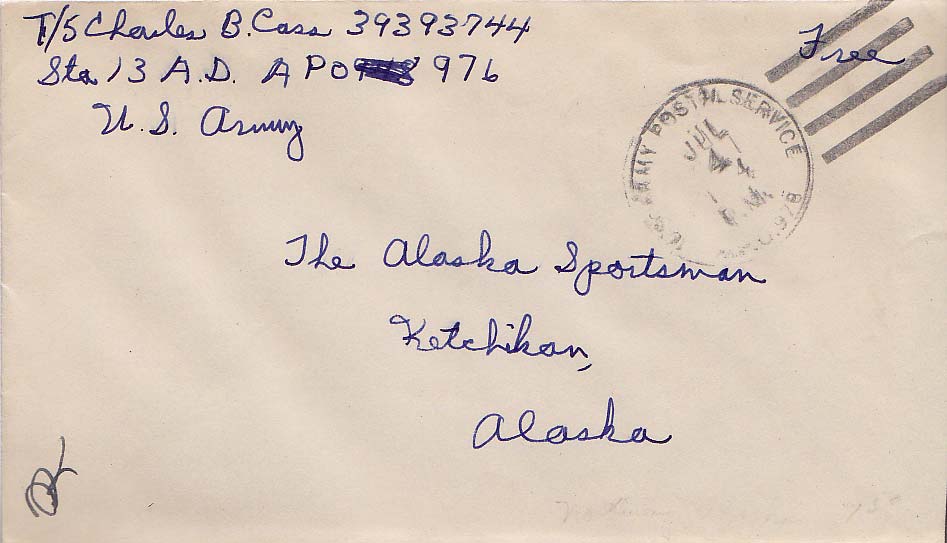 T/5 Charles B. Cass 39393744
Sta 13 A.D. A P O 976
U.S. Army
Free
U.S. ARMY POSTAL SERVICE
JUL
The Alaska Sportsman
Ketchikan,
Alaska